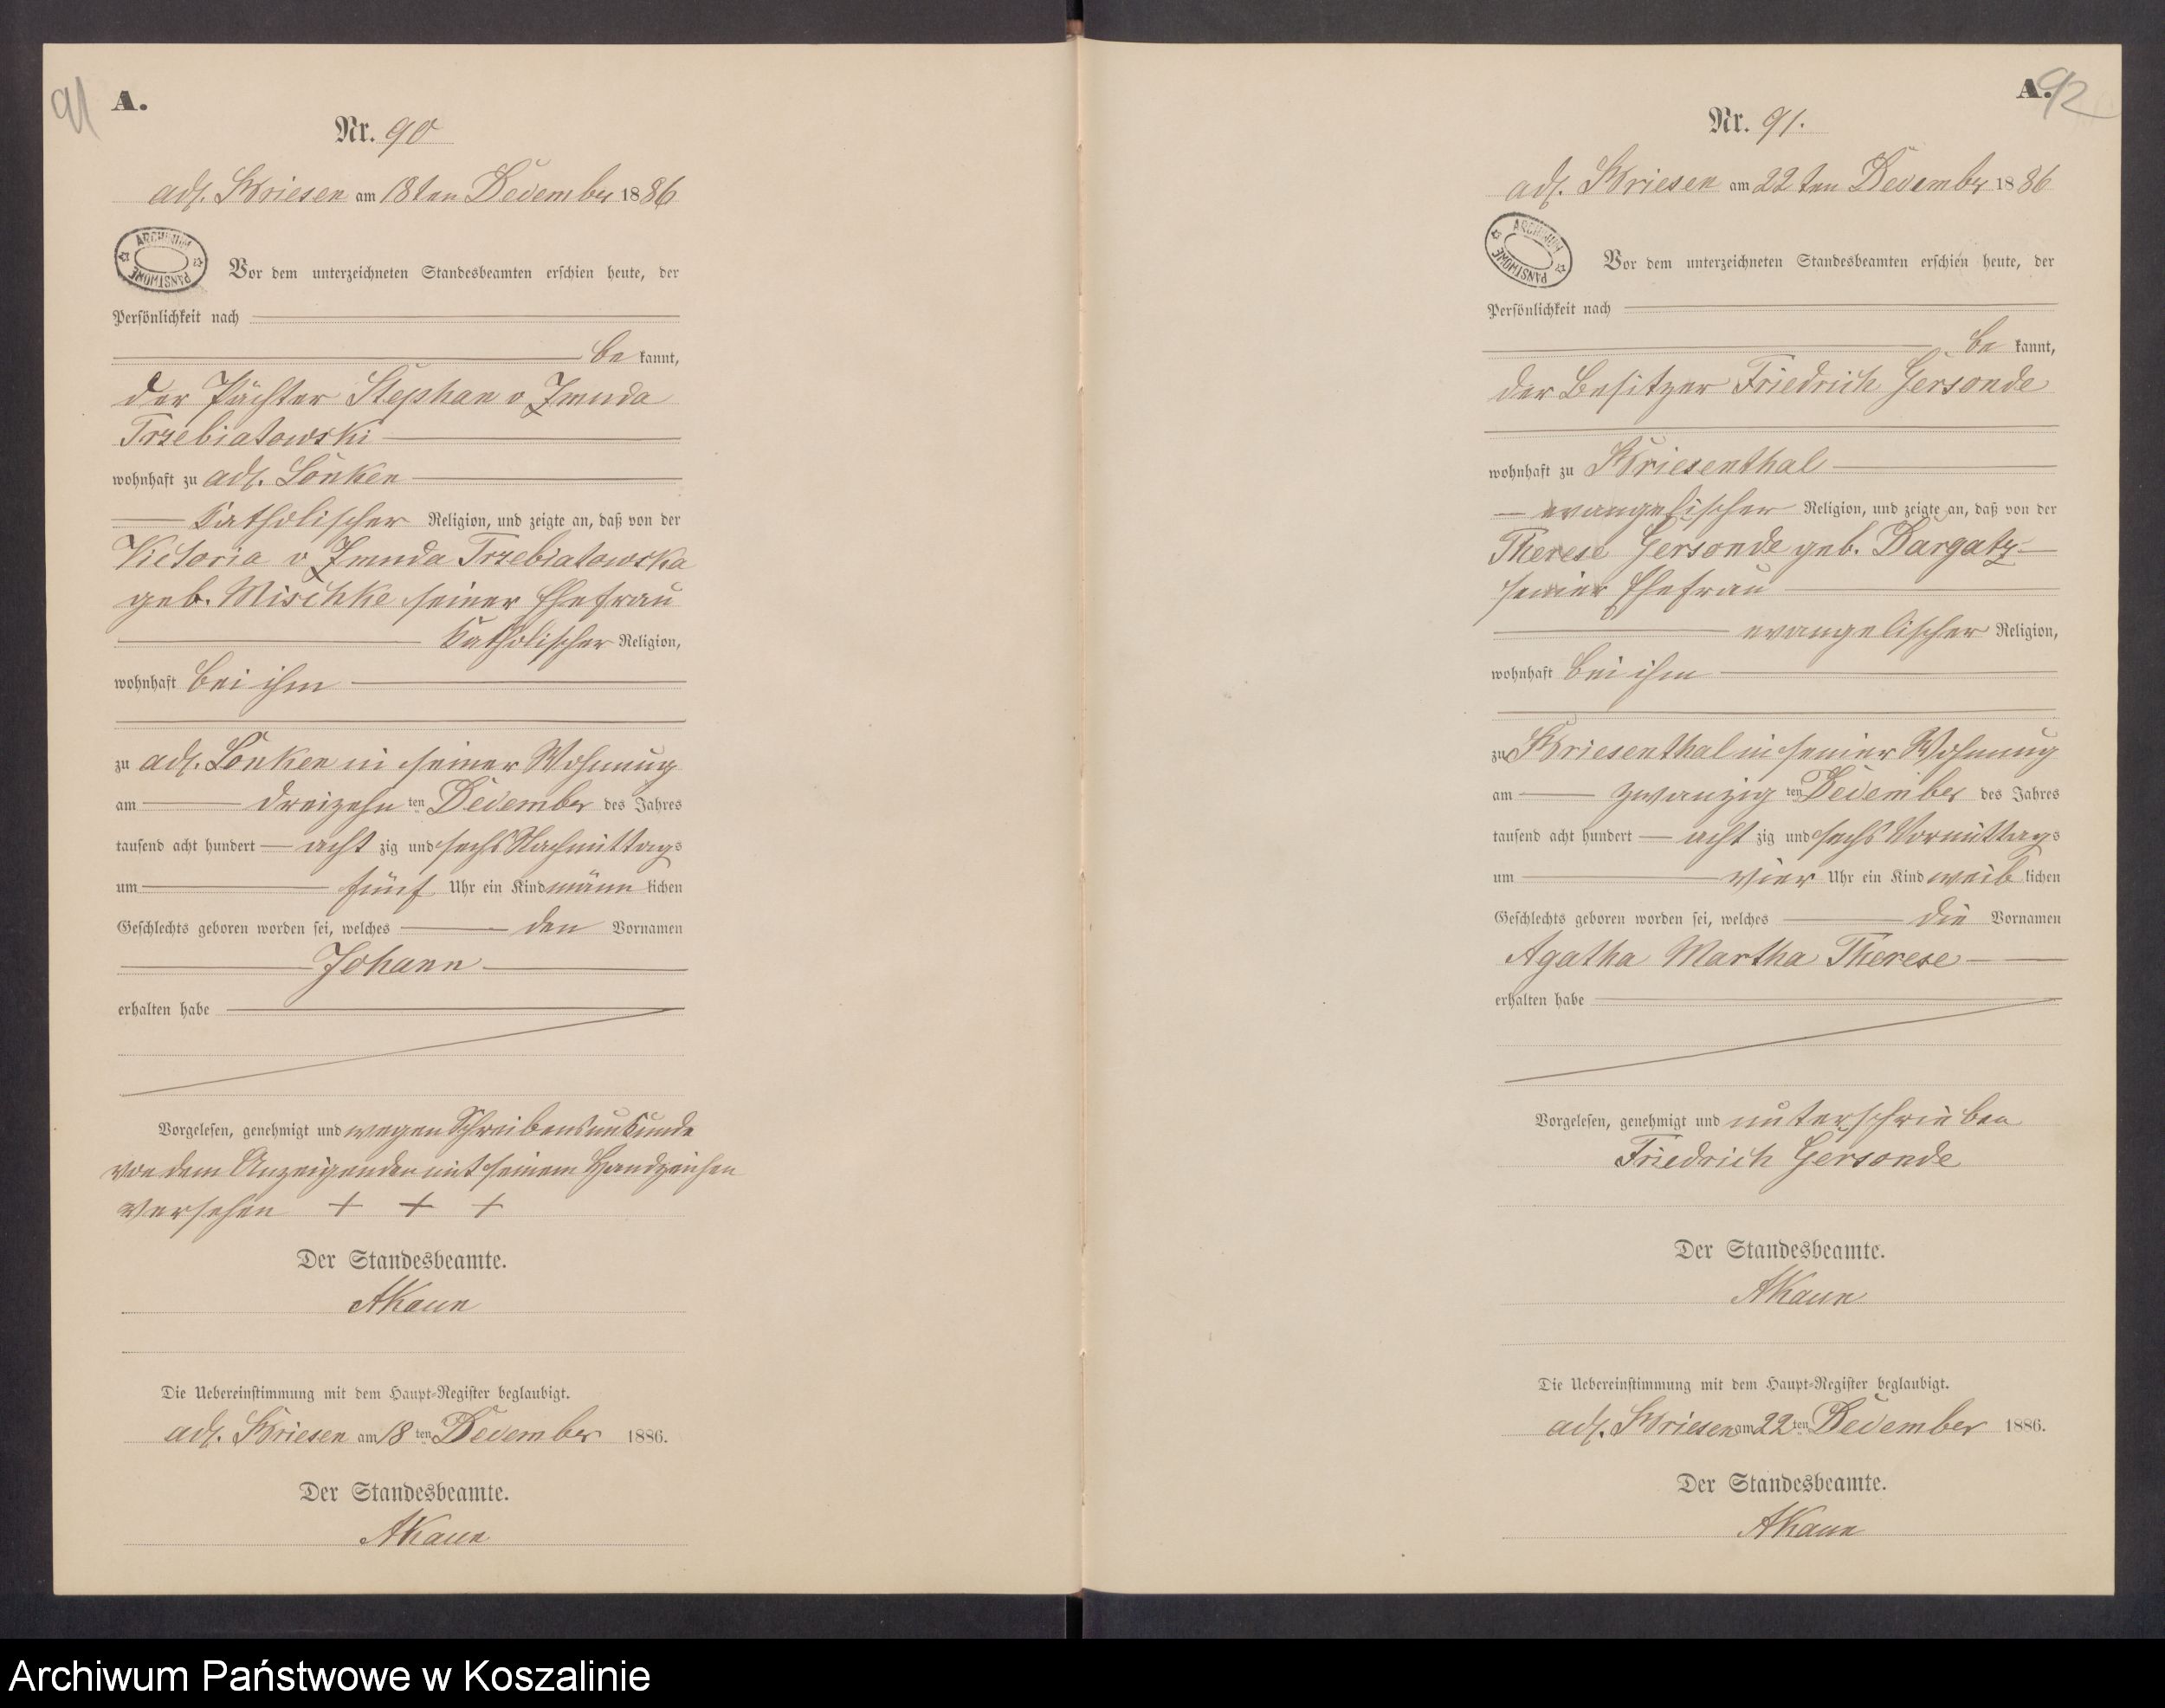 91
A.
Nr. 90
adl. Briesen am 18ten December 1886
ARCHIWUM PAŃSTWOWE
Vor dem unterzeichneten Standesbeamten erschien heute, der
Persönlichkeit nach
be kannt,
der Pächter Stephan v Zmuda
Trzebiatowski
wohnhaft zu adl. Lonken
katholischer Religion, und zeigte an, daß von der
Victoria v Zmuda Trzebiatowska
geb. Mischke seiner Ehefrau
katholischer Religion,
wohnhaft bei ihm
zu adl. Lonken in seiner Wohnung
am dreizehn ten December des Jahres
tausend acht hundert acht zig und sechs Nachmittags
um fünf Uhr ein Kind männ lichen
Geschlechts geboren worden sei, welches den Vornamen
Johann
erhalten habe
Vorgelesen, genehmigt und wegen Schreibensunkunde
von dem Anzeigenden mit seinem Handzeichen
versehen + + +
Der Standesbeamte.
AKaun
Die Uebereinstimmung mit dem Haupt-Register beglaubigt.
adl. Briesen am 18 ten December 1886.
Der Standesbeamte.
AKaun
A.
92
Nr. 91.
adl. Briesen am 22 ten December 1886
ARCHIWUM PAŃSTWOWE
Vor dem unterzeichneten Standesbeamten erschien heute, der
Persönlichkeit nach
be kannt,
der Besitzer Friedrich Gersonde
wohnhaft zu Briesenthal
evangelischer Religion, und zeigte an, daß von der
Therese Gersonde geb. Dargatz
seiner Ehefrau
evangelischer Religion,
wohnhaft bei ihm
zu Briesenthal in seiner Wohnung
am zwanzig ten December des Jahres
tausend acht hundert acht zig und sechs Vormittags
um vier Uhr ein Kind weib lichen
Geschlechts geboren worden sei, welches die Vornamen
Agatha Martha Therese
erhalten habe
Vorgelesen, genehmigt und unterschrieben
Friedrich Gersonde
Der Standesbeamte.
AKaun
Die Uebereinstimmung mit dem Haupt-Register beglaubigt.
adl. Briesen am 22 ten December 1886.
Der Standesbeamte.
AKaun
Archiwum Państwowe w Koszalinie